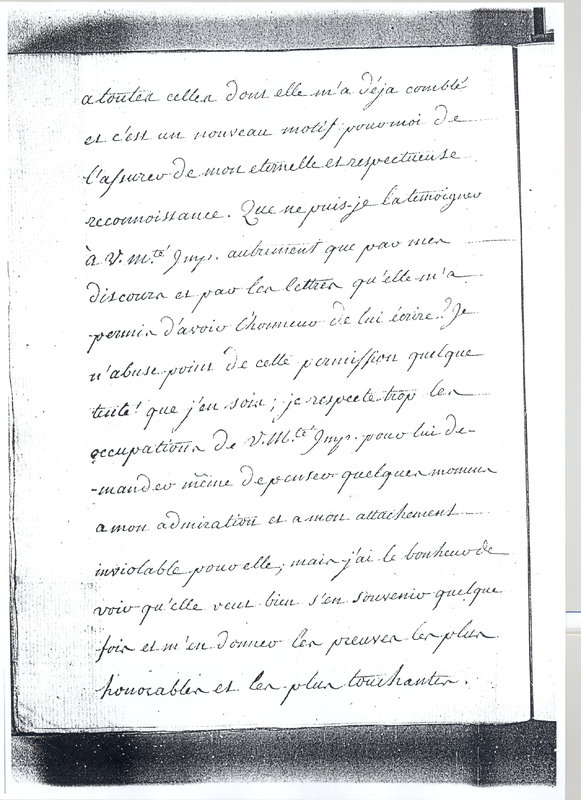 a toutes celles dont elle m'a déja comblé
et c'est un nouveau motif pour moi de
l'assurer de mon eternelle et respectueuse
reconnoissance. Que ne puis-je la temoigner
à V. M.té Imp. autrement que par mes
discours et par les lettres qu'elle m'a
permis d'avoir l'honneur de lui écrire! Je
n'abuse point de cette permission quelque
tenté! que j'en sois; je respecte trop les
occupations de V. M.té Imp. pour lui de-
-mander même de penser quelques momens
a mon admiration et a mon attachement
inviolable pour elle; mais j'ai le bonheur de
voir qu'elle veut bien s'en souvenir quelque
fois et m'en donner les preuves les plus
honorables et les plus touchantes.